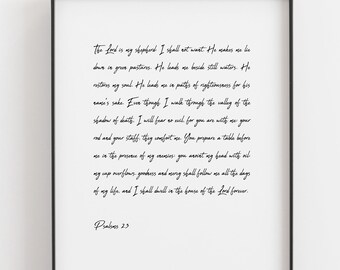 The Lord is my shepherd. I shall not want. He makes me lie
down in green pastures. He leads me beside still waters. He
restores my soul. He leads me in paths of righteousness for his
name's sake. Even though I walk through the valley of the
shadow of death, I will fear no evil, for you are with me; your
rod and your staff, they comfort me. You prepare a table before
me in the presence of my enemies; you anoint my head with oil;
my cup overflows. goodness and mercy shall follow me all the days
of my life, and I shall dwell in the house of the Lord forever.
Psalms 23